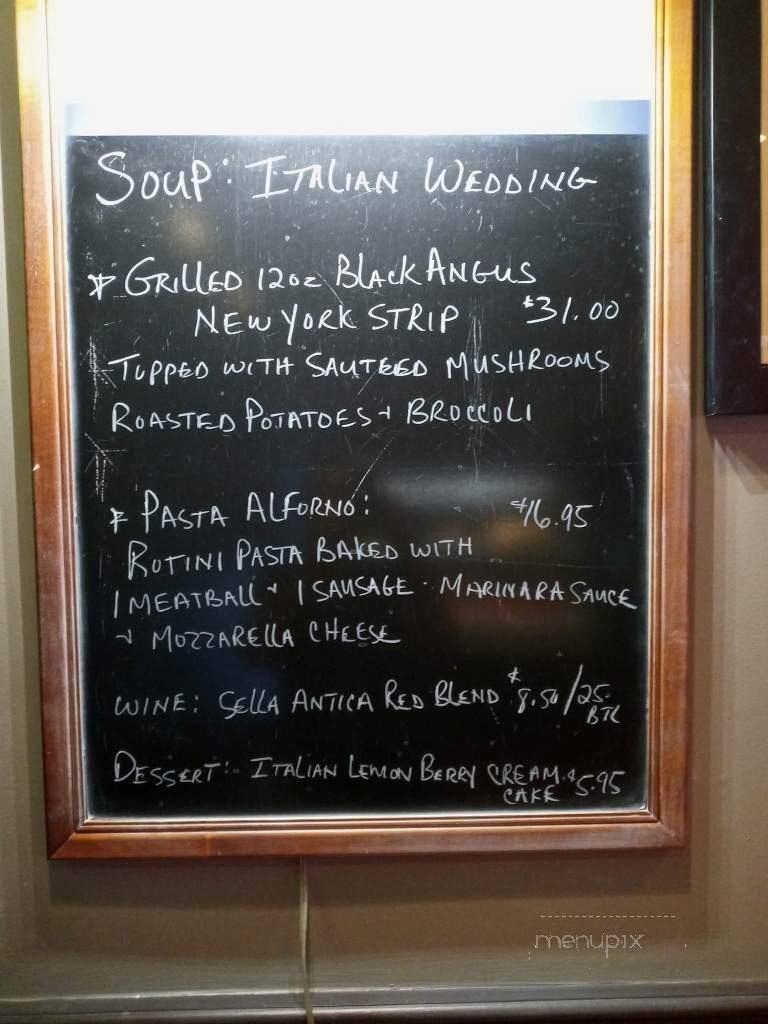 SOUP: ITALIAN WEDDING
* GRILLED 12oz BLACK ANGUS
NEW YORK STRIP $31.00
TOPPED WITH SAUTEED MUSHROOMS
ROASTED POTATOES + BROCCOLI
* PASTA ALFORNO: $16.95
ROTINI PASTA BAKED WITH
1 MEATBALL + 1 SAUSAGE · MARINARA SAUCE
+ MOZZARELLA CHEESE
WINE: SELLA ANTICA RED BLEND $8.50/25.
BTL
DESSERT: ITALIAN LEMON BERRY CREAM $5.95
CAKE
menupix